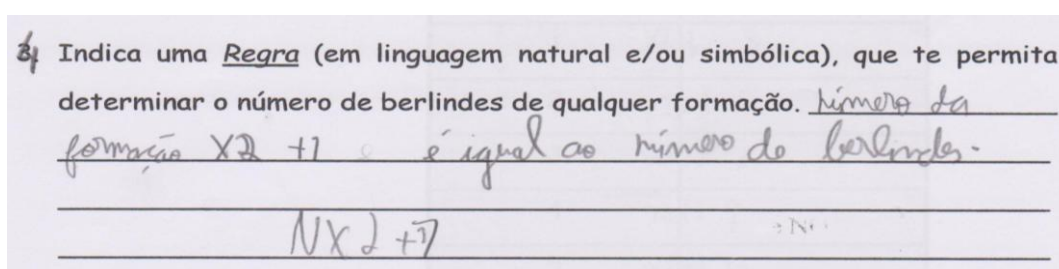 4 Indica uma Regra (em linguagem natural e/ou simbólica), que te permita
determinar o número de berlindes de qualquer formação. Número da
formação X2 +1 é igual ao número de berlindes.
NX2+1